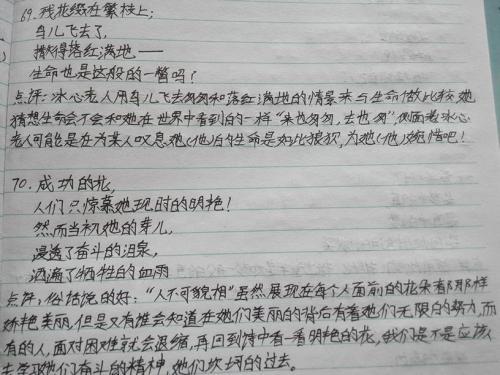 69. 残花缀在繁枝上;
鸟儿飞去了,
撒得落红满地——
生命也是这般的一瞥吗?
点评:冰心老人用鸟儿飞去匆匆和落红满地的情景来与生命做比较,她
猜想生命会不会和她在世界中看到的一样"来也匆匆,去也匆",侧面老冰心
老人可能是在为某人叹息她(他)的生命是如此狼狈,为她(他)惋惜吧!
70. 成功的花,
人们只惊慕她现时的明艳!
然而当初她的芽儿,
浸透了奋斗的泪泉,
洒遍了牺牲的血雨
点评:俗话说的好:"人不可貌相"虽然展现在每个人面前的花朵有那那样
娇艳美丽,但是又有谁会知道在她们美丽的背后有着她们无限的努力,而
有的人,面对困难就会退缩,再回到诗中看一看明艳的花,我们是不是应该
去学习她们奋斗的精神,她们坎坷的过去。